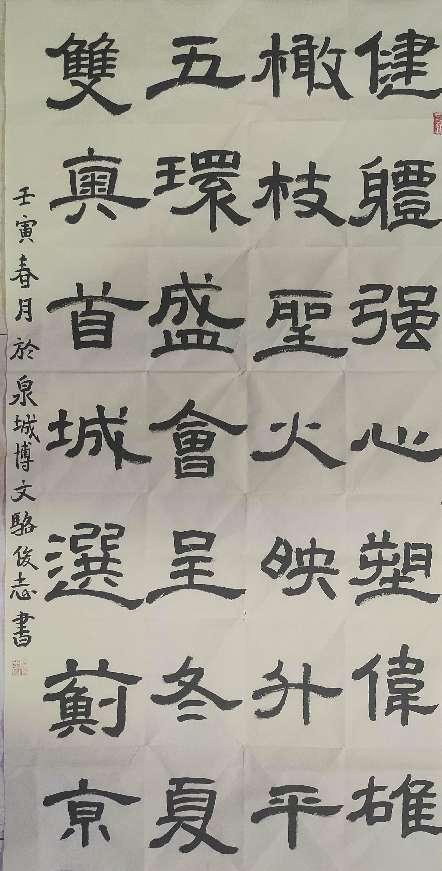 健軆强心塑偉雄
橄枝聖火映升平
五環盛會呈冬夏
雙奧首城選薊京
壬寅春月於泉城博文駱俊志書